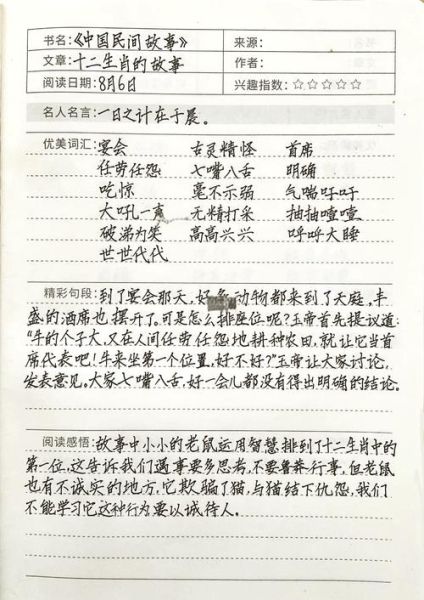 书名：《中国民间故事》 来源：
文章：十二生肖的故事 作者：
阅读日期：8月6日 兴趣指数：☆☆☆☆☆
名人名言：一日之计在于晨。
优美词汇：宴会 古灵精怪 首席
任劳任怨 七嘴八舌 明确
吃惊 毫不示弱 气喘吁吁
大吼一声 无精打采 抽抽噎噎
破涕为笑 高高兴兴 呼呼大睡
世世代代
精彩句段：到了宴会那天，好多动物都来到了天庭，丰
盛的酒席也摆开了。可是怎么排座位呢？玉帝首先提议道：
“牛的个子大，又在人间任劳任怨地耕种农田，就让它当首
席代表吧！牛来坐第一个位置，好不好？”玉帝让大家讨论，
发表意见。大家七嘴八舌，好一会儿都没有得出明确的结论。
阅读感悟：故事中小小的老鼠运用智慧排到了十二生肖中的
第一位，这告诉我们遇事要多思考，不要鲁莽行事，但老鼠
也有不诚实的地方，它欺骗了猫，与猫结下仇怨，我们
不能学习它这种行为要以诚待人。